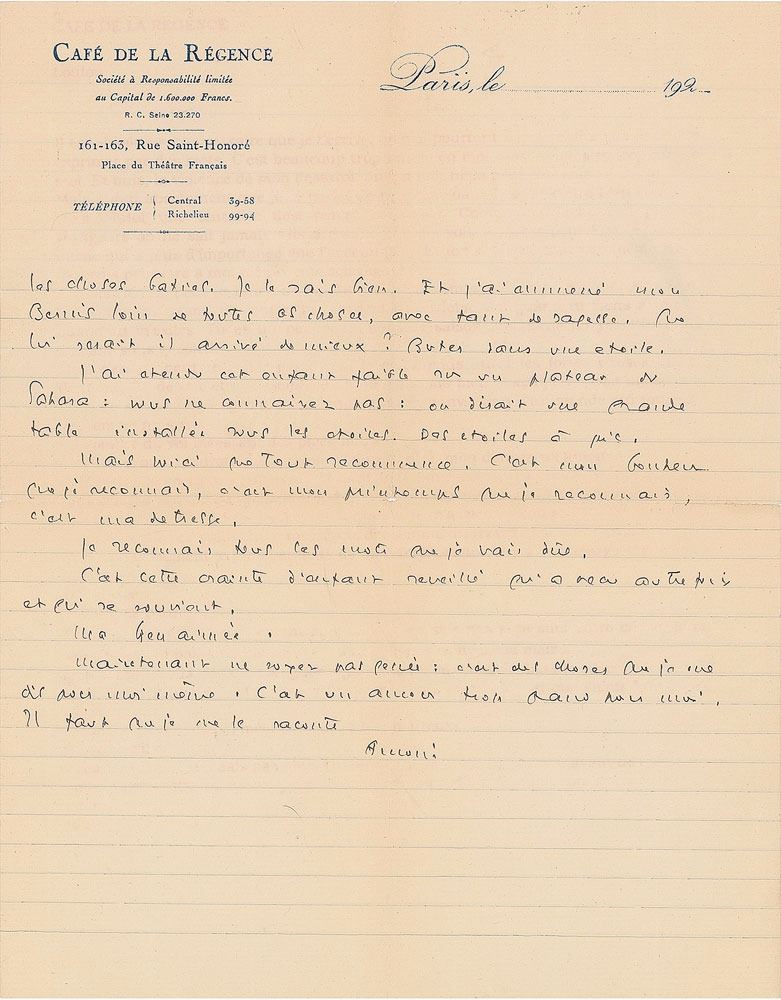 CAFÉ DE LA RÉGENCE
Société à Responsabilité limitée
au Capital de 1.600.000 Francs.
R. C. Seine 23.270
161-163, Rue Saint-Honoré
Place du Théâtre Français
TÉLÉPHONE { Central 39-58
Richelieu 99-94
Paris, le 192
les choses baties. Je le sais bien. Et j'ai emmené mon
Bernis loin de toutes ces choses, avec tant de sagesse. Que
lui serait il arrivé de mieux ? Buter dans une etoile.
J'ai etendu cet enfant faible sur un plateau du
Sahara : vous ne connaissez pas : on dirait une grande
table installée sous les etoiles. Des etoiles à pic.
Mais voici que tout recommence. C'est mon bonheur
que je reconnais, c'est mon printemps que je reconnais,
c'est ma detresse.
Je reconnais tous les mots que je vais dire.
C'est cette crainte d'enfant reveillé qui a reçu autrefois
et qui se souvient.
Ma bien aimée.
Maintenant ne soyez pas genée : c'est des choses que je me
dis pour moi même. C'est un amour trop grand pour moi.
Il faut que je me le raconte